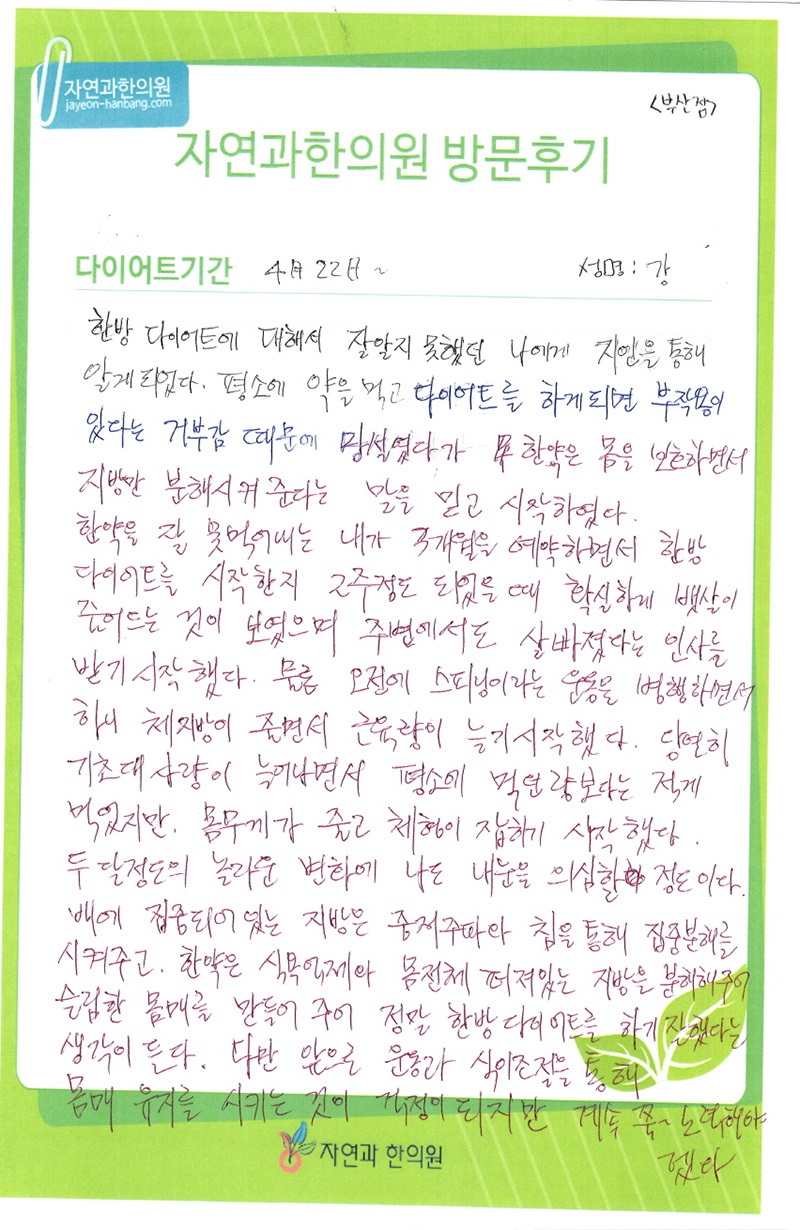 자연과한의원
jayeon-hanbang.com
<부산점>
자연과한의원 방문후기
다이어트기간 4月 22日 ~ 성명 : 강
한방 다이어트에 대해서 잘알지 못했던 나에게 지인을 통해
알게되었다. 평소에 약을 먹고 다이어트를 하게되면 부작용이
있다는 거부감 때문에 망설였다가 한약은 몸을 보호하면서
지방만 분해시켜 준다는 말을 믿고 시작하였다.
한약을 잘 못먹어내는 내가 3개월을 예약하면서 한방
다이어트를 시작한지 2주정도 되었을 때 확실하게 뱃살이
줄어드는 것이 보였으며 주변에서도 살빠졌다는 인사를
받기 시작했다. 물론 오전에 스피닝이라는 운동을 병행하면서
하니 체지방이 줄면서 근육량이 늘기시작했다. 당연히
기초대사량이 늘어나면서 평소에 먹던량보다는 적게
먹었지만. 몸무게가 줄고 체형이 잡히기 시작했다.
두달정도의 놀라운 변화에 나도 내눈을 의심할 정도이다.
배에 집중되어 있는 지방은 중저주파와 침을 통해 집중분해를
시켜주고. 한약은 식욕억제와 몸전체 퍼져있는 지방을 분해해주어
슬림한 몸매를 만들어 주어 정말 한방다이어트를 하게잘했다는
생각이 든다. 다만 앞으로 운동과 식이조절을 통해
몸매 유지를 시키는 것이 걱정이되지만 계속 쭉~ 노력해야
겠다
자연과 한의원